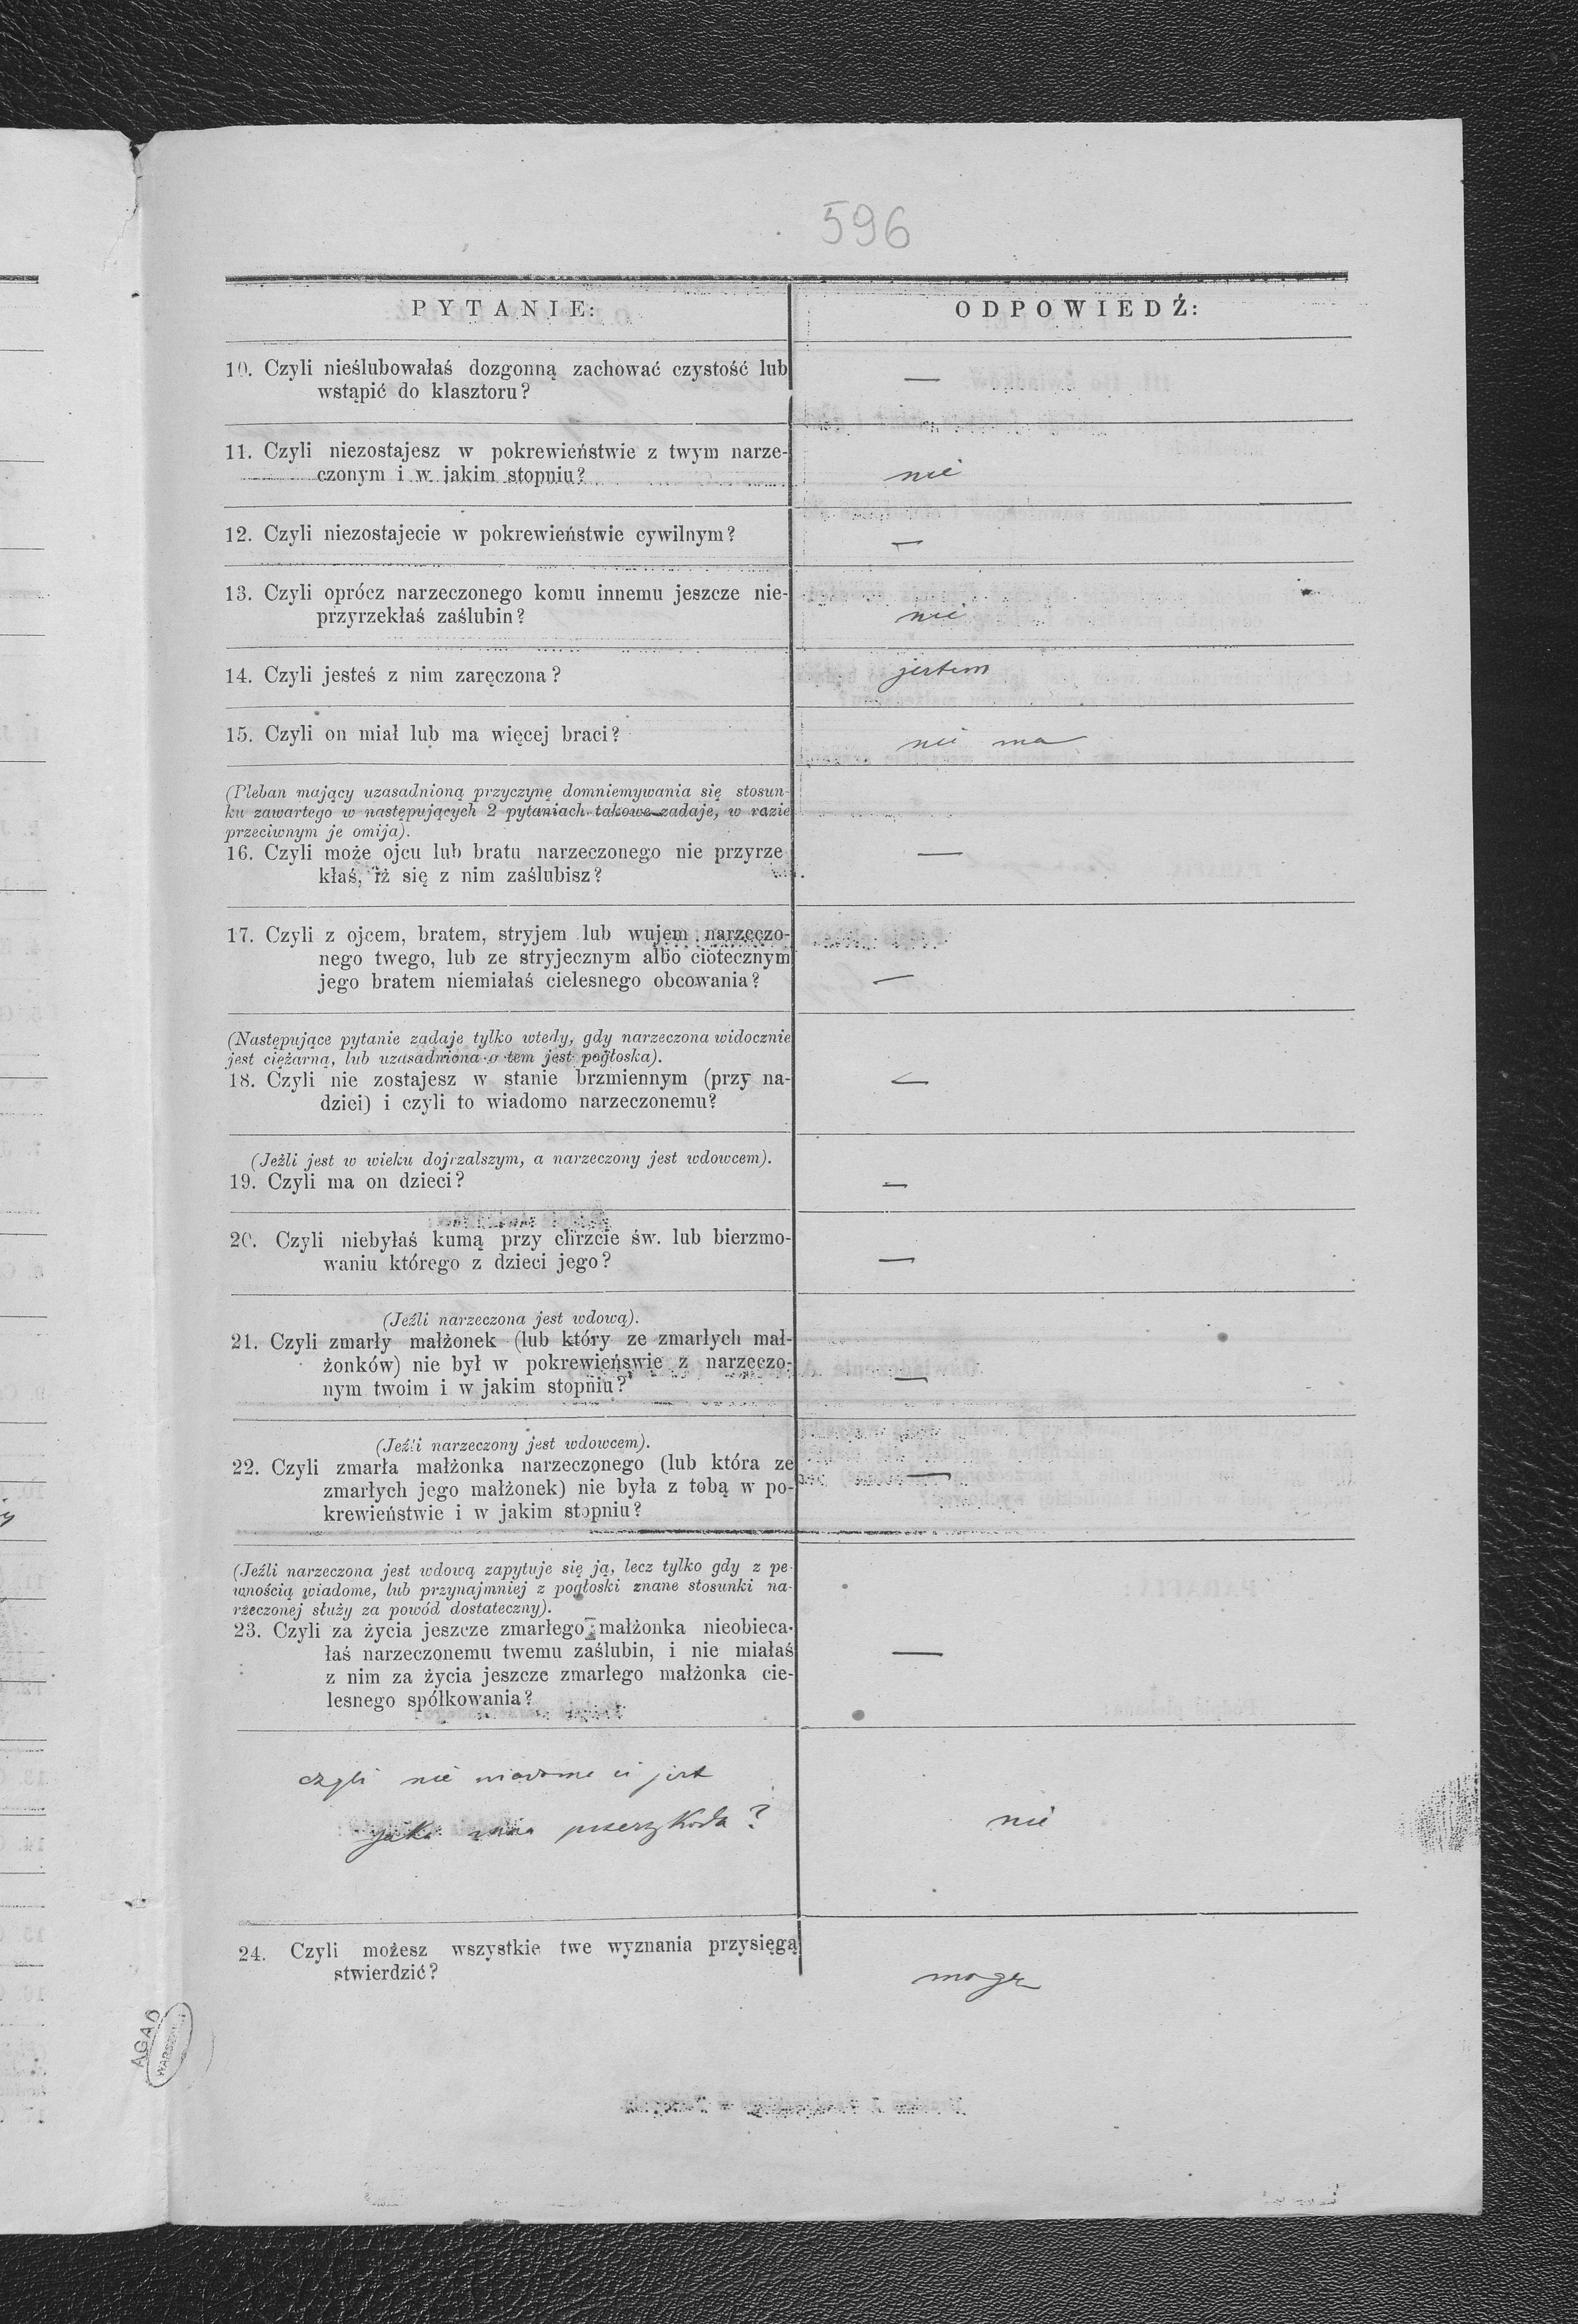 596
PYTANIE:
ODPOWIEDŹ:
10. Czyli nieślubowałaś dozgonną zachować czystość lub
wstąpić do klasztoru?
—
11. Czyli niezostajesz w pokrewieństwie z twym narze-
czonym i w jakim stopniu?
nie
12. Czyli niezostajecie w pokrewieństwie cywilnym?
—
13. Czyli oprócz narzeczonego komu innemu jeszcze nie-
przyrzekłaś zaślubin?
nie
14. Czyli jesteś z nim zaręczona?
jestem
15. Czyli on miał lub ma więcej braci?
nie ma
(Pleban mający uzasadnioną przyczynę domniemywania się stosun-
ku zawartego w następujących 2 pytaniach takowe zadaje, w razie
przeciwnym je omija).
16. Czyli może ojcu lub bratu narzeczonego nie przyrze
kłaś, iż się z nim zaślubisz?
—
17. Czyli z ojcem, bratem, stryjem lub wujem narzeczo-
nego twego, lub ze stryjecznym albo ciotecznym
jego bratem niemiałaś cielesnego obcowania?
—
(Następujące pytanie zadaje tylko wtedy, gdy narzeczona widocznie
jest ciężarną, lub uzasadniona o tem jest pogłoska).
18. Czyli nie zostajesz w stanie brzmiennym (przy na-
dziei) i czyli to wiadomo narzeczonemu?
—
(Jeżli jest w wieku dojrzalszym, a narzeczony jest wdowcem).
19. Czyli ma on dzieci?
—
20. Czyli niebyłaś kumą przy chrzcie św. lub bierzmo-
waniu którego z dzieci jego?
—
(Jeźli narzeczona jest wdową).
21. Czyli zmarły małżonek (lub który ze zmarłych mał-
żonków) nie był w pokrewieńswie z narzeczo-
nym twoim i w jakim stopniu?
—
(Jeźli narzeczony jest wdowcem).
22. Czyli zmarła małżonka narzeczonego (lub która ze
zmarłych jego małżonek) nie była z tobą w po-
krewieństwie i w jakim stopniu?
—
(Jeźli narzeczona jest wdową zapytuje się ją, lecz tylko gdy z pe-
wnością wiadome, lub przynajmniej z pogłoski znane stosunki na-
rzeczonej służy za powód dostateczny).
23. Czyli za życia jeszcze zmarłego małżonka nieobieca-
łaś narzeczonemu twemu zaślubin, i nie miałaś
z nim za życia jeszcze zmarłego małżonka cie-
lesnego spółkowania?
—
czyli nie wiadome ci jest
jaka inna przeszkoda?
nie
24. Czyli możesz wszystkie twe wyznania przysięgą
stwierdzić?
mogę
AGAD
WARSZAWA